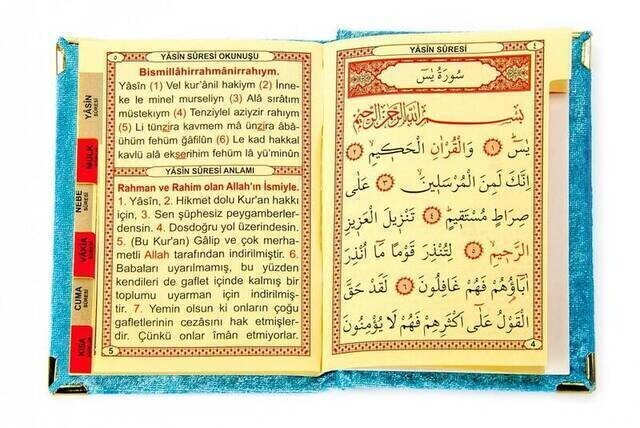 ٥
YÂSİN SÛRESİ OKUNUŞU
Bismillâhirrahmânirrahıym.
Yâsîn (1) Vel kur'ânil hakiym (2) İnne-
ke le minel murseliyn (3) Alâ sırâtım
müstekıym (4) Tenziylel aziyzir rahıym
(5) Li tünzira kavmem mâ ünzira âbâ-
ühüm fehüm ğâfilûn (6) Le kad hakkal
kavlü alâ ekserihim fehüm lâ yü'minûn
YÂSİN SÛRESİ ANLAMI
Rahman ve Rahim olan Allah'ın İsmiyle.
1. Yâsîn, 2. Hikmet dolu Kur'an hakkı
için, 3. Sen şüphesiz peygamberler-
densin. 4. Dosdoğru yol üzerindesin.
5. (Bu Kur'an) Gâlip ve çok merha-
metli Allah tarafından indirilmiştir. 6.
Babaları uyarılmamış, bu yüzden
kendileri de gaflet içinde kalmış bir
toplumu uyarman için indirilmiş-
tir. 7. Yemin olsun ki onların çoğu
gafletlerinin cezasını hak etmişler-
dir. Çünkü onlar îman etmiyorlar.
5
YÂSİN
SÛRESİ
MÜLK
NEBE
SÛRESİ
VÂKIA
SÛRESİ
CUMA
SÛRESİ
KISA
YÂSİN SÛRESİ
٤
سُورَةُ يٰسٓ
بِسْمِ اللّٰهِ الرَّحْمٰنِ الرَّحِيمِ
يٰسٓ ﴿١﴾ وَالْقُرْاٰنِ الْحَكِيمِ ﴿٢﴾
اِنَّكَ لَمِنَ الْمُرْسَلِينَ ﴿٣﴾ عَلٰى
صِرَاطٍ مُسْتَقِيمٍ ﴿٤﴾ تَنْزِيلَ الْعَزِيزِ
الرَّحِيمِ ﴿٥﴾ لِتُنْذِرَ قَوْمًا مَٓا اُنْذِرَ
اٰبَٓاؤُهُمْ فَهُمْ غَافِلُونَ ﴿٦﴾ لَقَدْ حَقَّ
الْقَوْلُ عَلٰٓى اَكْثَرِهِمْ فَهُمْ لَا يُؤْمِنُونَ
4